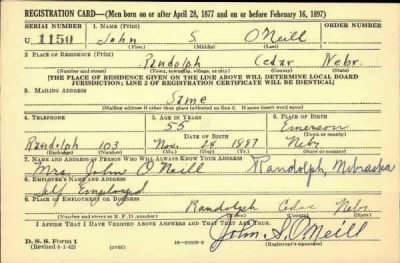 REGISTRATION CARD—(Men born on or after April 28, 1877 and on or before February 16, 1897)
SERIAL NUMBER 1. NAME (Print) ORDER NUMBER
U 1150 John S. O'Neill
(First) (Middle) (Last)
2. PLACE OF RESIDENCE (Print)
Randolph Cedar Nebr.
(Number and street) (Town, township, village, or city) (County) (State)
[THE PLACE OF RESIDENCE GIVEN ON THE LINE ABOVE WILL DETERMINE LOCAL BOARD
JURISDICTION; LINE 2 OF REGISTRATION CERTIFICATE WILL BE IDENTICAL]
3. MAILING ADDRESS
Same
[Mailing address if other than place indicated on line 2. If same insert word same]
4. TELEPHONE 5. AGE IN YEARS 6. PLACE OF BIRTH
55 Emerson
DATE OF BIRTH (Town or county)
Randolph 103 Nov. 24 1887 Nebr
(Mo.) (Day) (Yr.) (State or country)
7. NAME AND ADDRESS OF PERSON WHO WILL ALWAYS KNOW YOUR ADDRESS
Mrs. John O'Neill Randolph, Nebraska
8. EMPLOYER'S NAME AND ADDRESS
Self Employed
9. PLACE OF EMPLOYMENT OR BUSINESS
Randolph Cedar Nebr
(Number and street or R. F. D. number) (Town) (County) (State)
I AFFIRM THAT I HAVE VERIFIED ABOVE ANSWERS AND THAT THEY ARE TRUE.
D. S. S. Form 1
(Revised 4-1-42) (over) John S. O'Neill
(Registrant's signature)